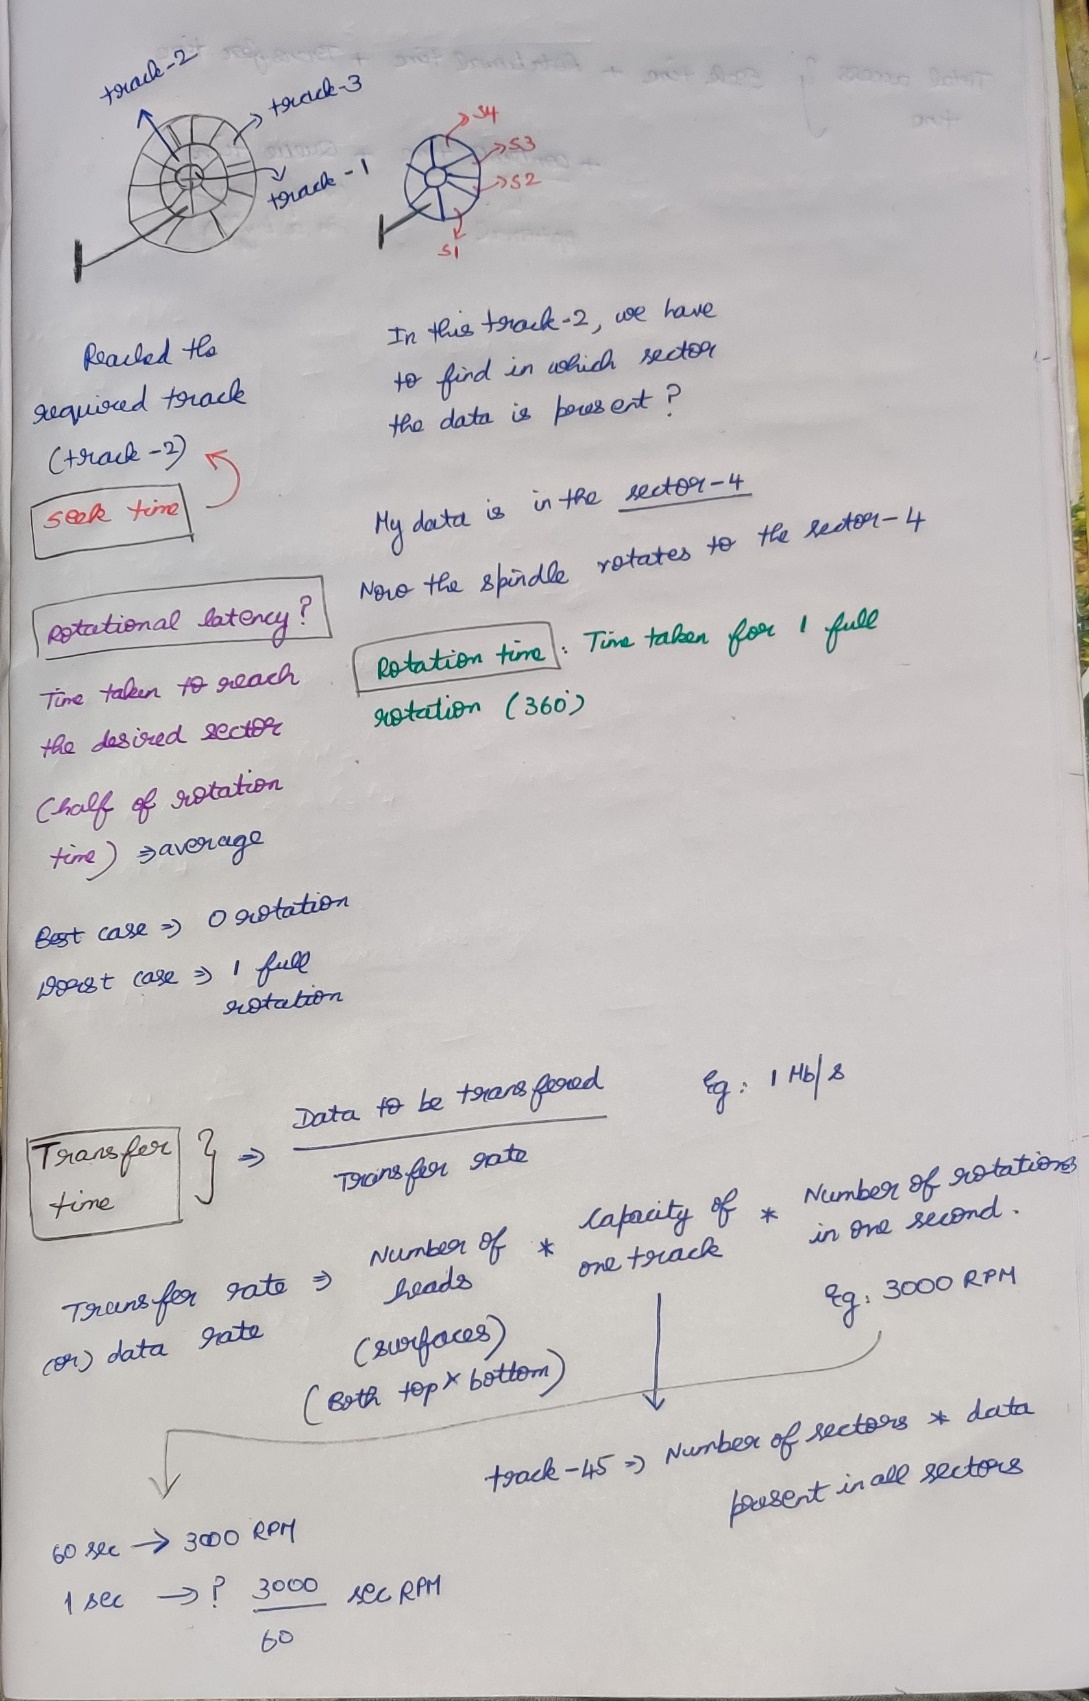 track-2
track-3
track-1
S4
S3
S2
S1
Reached the
required track
(track-2)
Seek time
In this track-2, we have
to find in which sector
the data is present?
My data is in the sector-4
Now the spindle rotates to the sector-4
Rotational latency?
Time taken to reach
the desired sector
(half of rotation
time) ⇒ average
Rotation time: Time taken for 1 full
rotation (360°)
Best case ⇒ 0 rotation
Worst case ⇒ 1 full
rotation
Transfer
time
} ⇒ Data to be transfered
Transfer rate
Eg: 1 Mb/s
Transfer rate ⇒ Number of * Capacity of * Number of rotations
(or) data rate heads one track in one second.
(surfaces)
(Both top x bottom)
Eg: 3000 RPM
track-45 ⇒ Number of sectors * data
present in all sectors
60 sec → 3000 RPM
1 sec → ? 3000 sec RPM
60